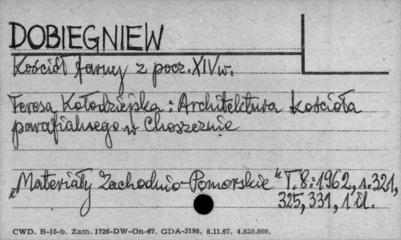 DOBIEGNIEW
Kościół farny z pocz. XIV w.
Teresa Kołodziejska: Architektura kościoła
parafialnego w Choszcznie
„Materiały Zachodnio-Pomorskie" T. 8: 1962, s. 321,
325, 331, 1 il.
CWD. B-15-b. Zam. 1726-DW-On-67. GDA-3198. 8.11.67. 4.650.000.